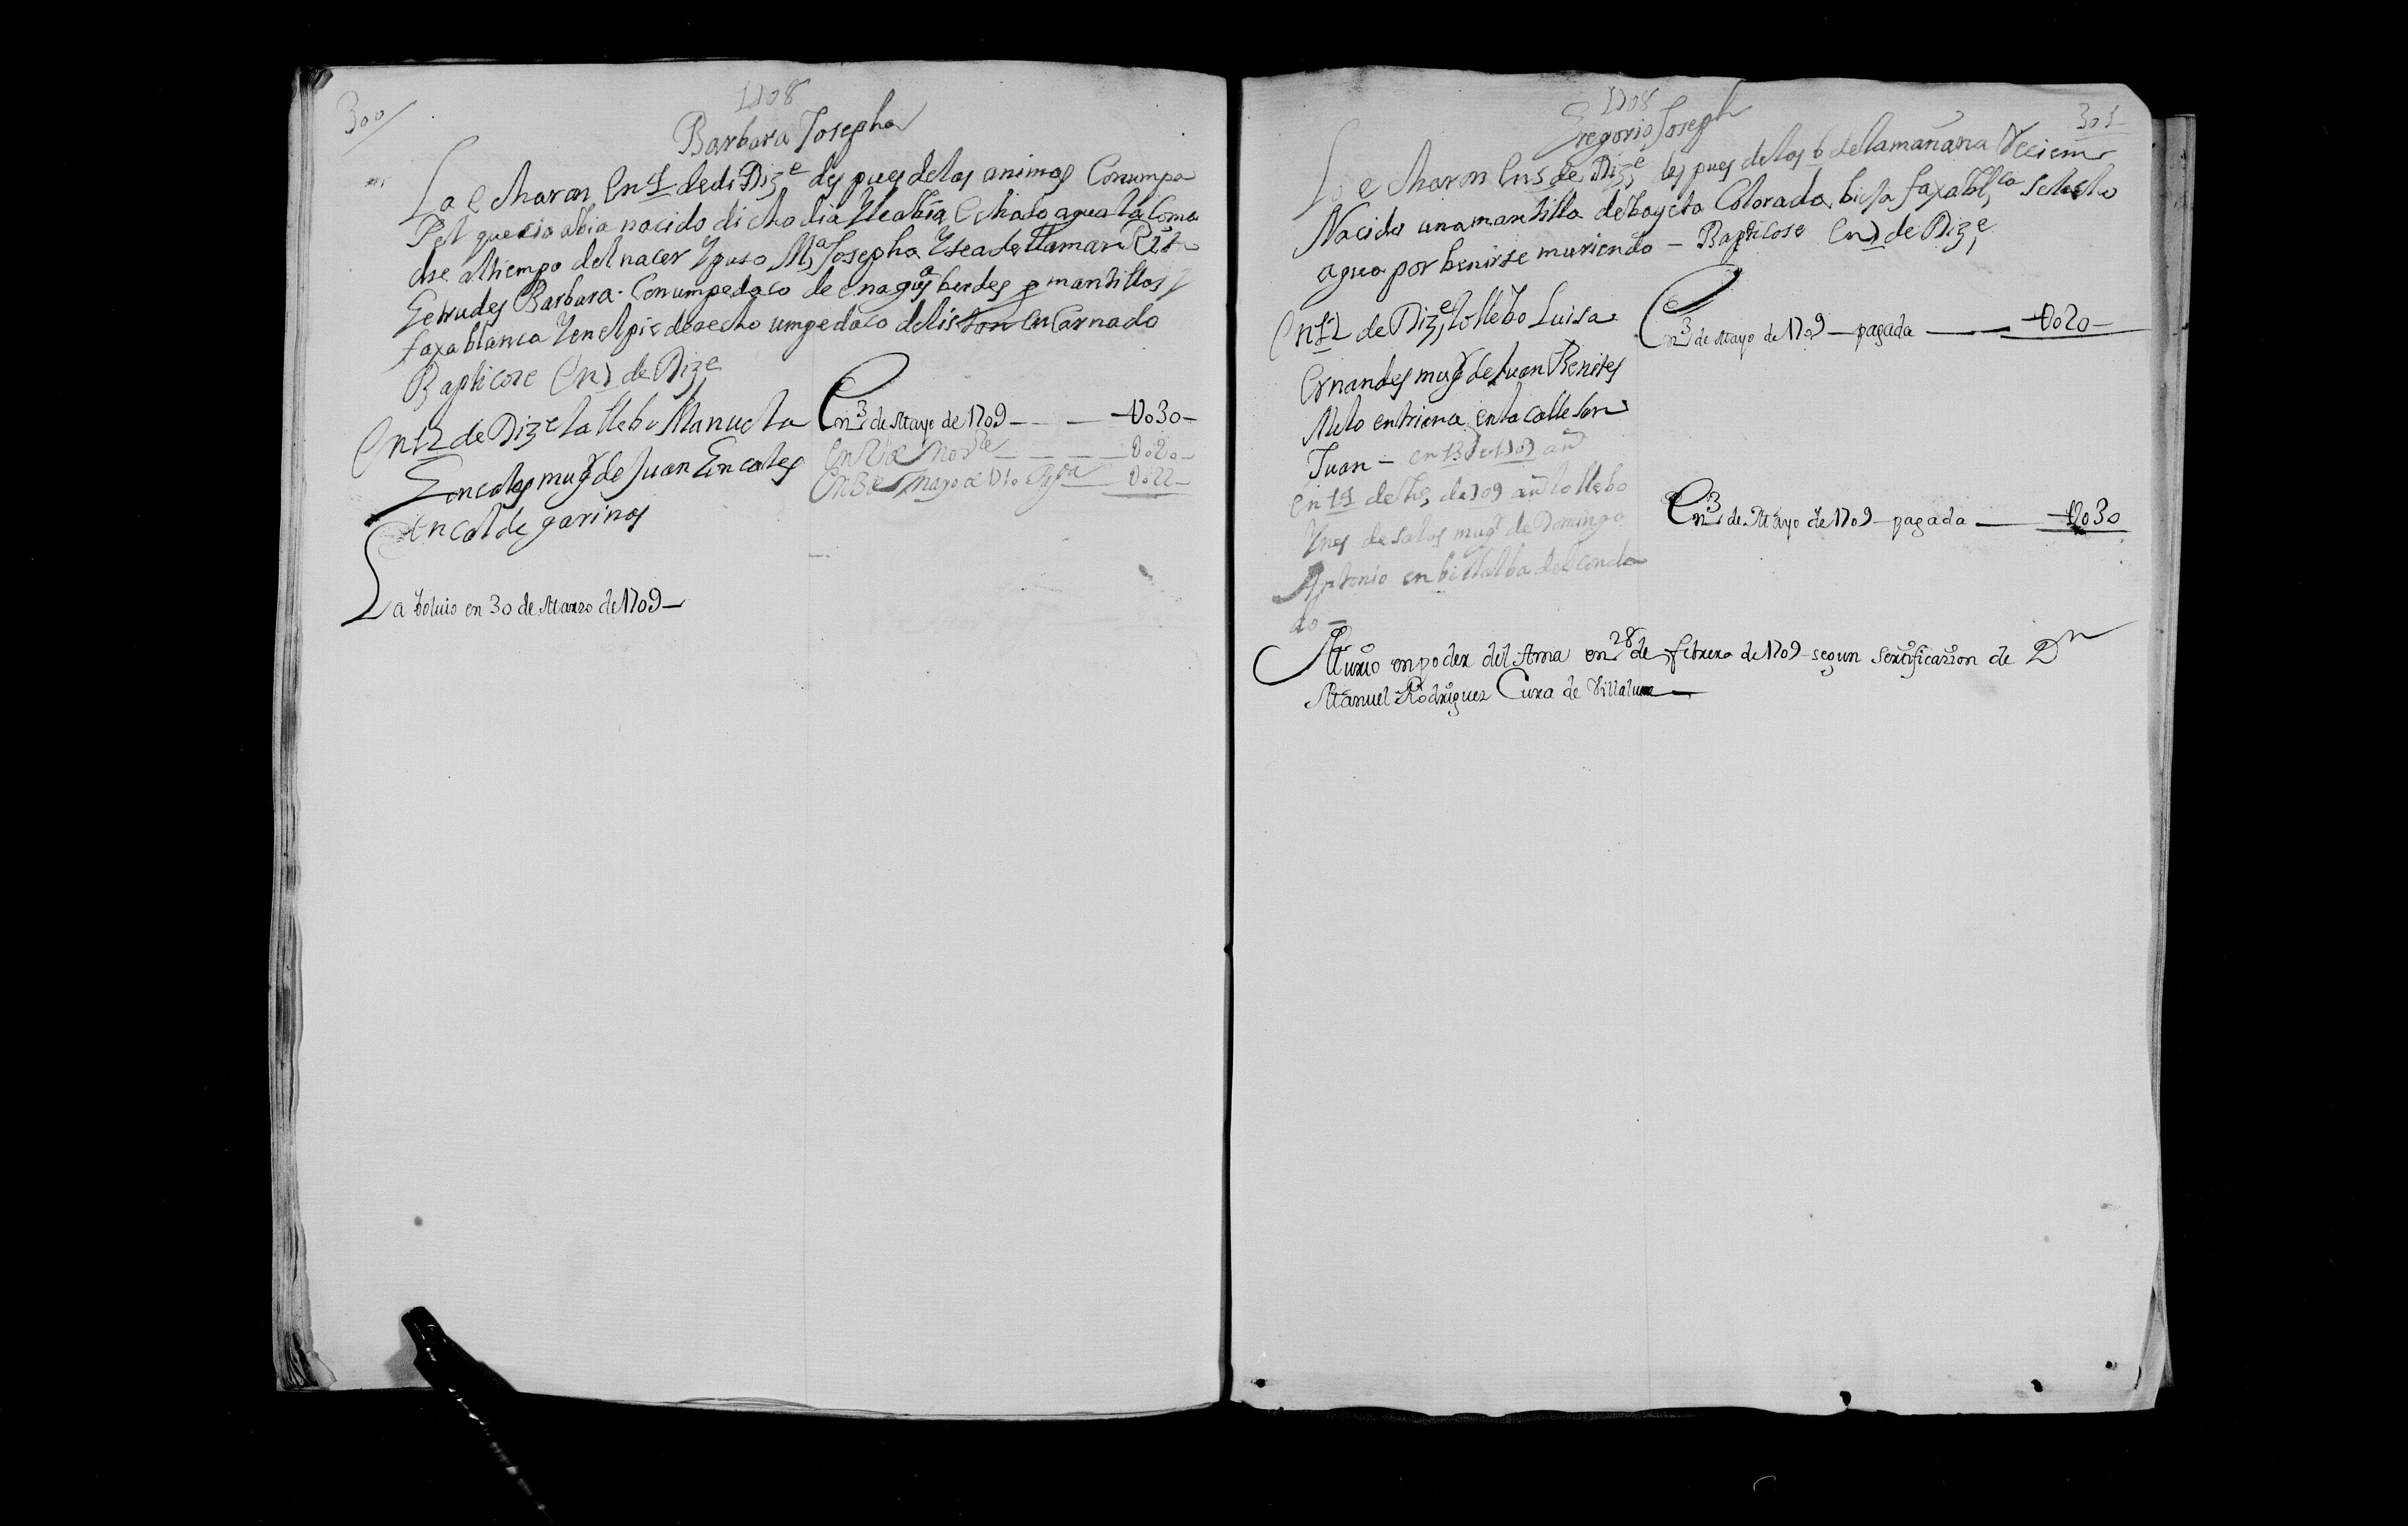 300
1708
Barbara Josepha
La echaron en 4 de di Dize despues de las animas Con um pa
Pel que cia abia nacido dicho dia y le abia echado agua la Coma
dre al tiempo del nacer y puso Ma Josepha y sea de llamar Rita
Getrudes Barbara. Con um pedaco de enaguas berdes p mantillas y
faxa blanca y en el pie derecho um pedaco de liston encarnado
Bapticose en 7 de Dize
en 12 de Dize la llebo Manuela
Goncales mugr de Juan Goncales
en Cal de garinos
La bolvio en 30 de Marzo de 1709
En 3 de Mayo de 1709 U030
U020
En 3 de Mayo de 710 U022
1708
301
Gregorio Joseph
Lo echaron en 5 de Dize des pues de las 6 de la mañana Recien
Nacido una mantilla de bayeta Colorada bieja faxa blca Se le echo
agua por benirse muriendo - Bapticose en 7 de Dize
en 12 de Dize lo llebo Luisa
Ernandes mugr de Juan Benites
Nieto en triana en la calle San
Juan - en 13 de 1709 añ
en 14 de de 709 añ lo llebo
Ynes de Salas mugr de Domingo
Antonio en billalba del conda
do -
En 3 de Mayo de 1709 pagada U020
En 3 de Mayo de 1709 pagada U030
Murio en poder del Ama en 28 de febrero de 1709 segun Sertificazion de Dn
Manuel Rodriguez Cura de